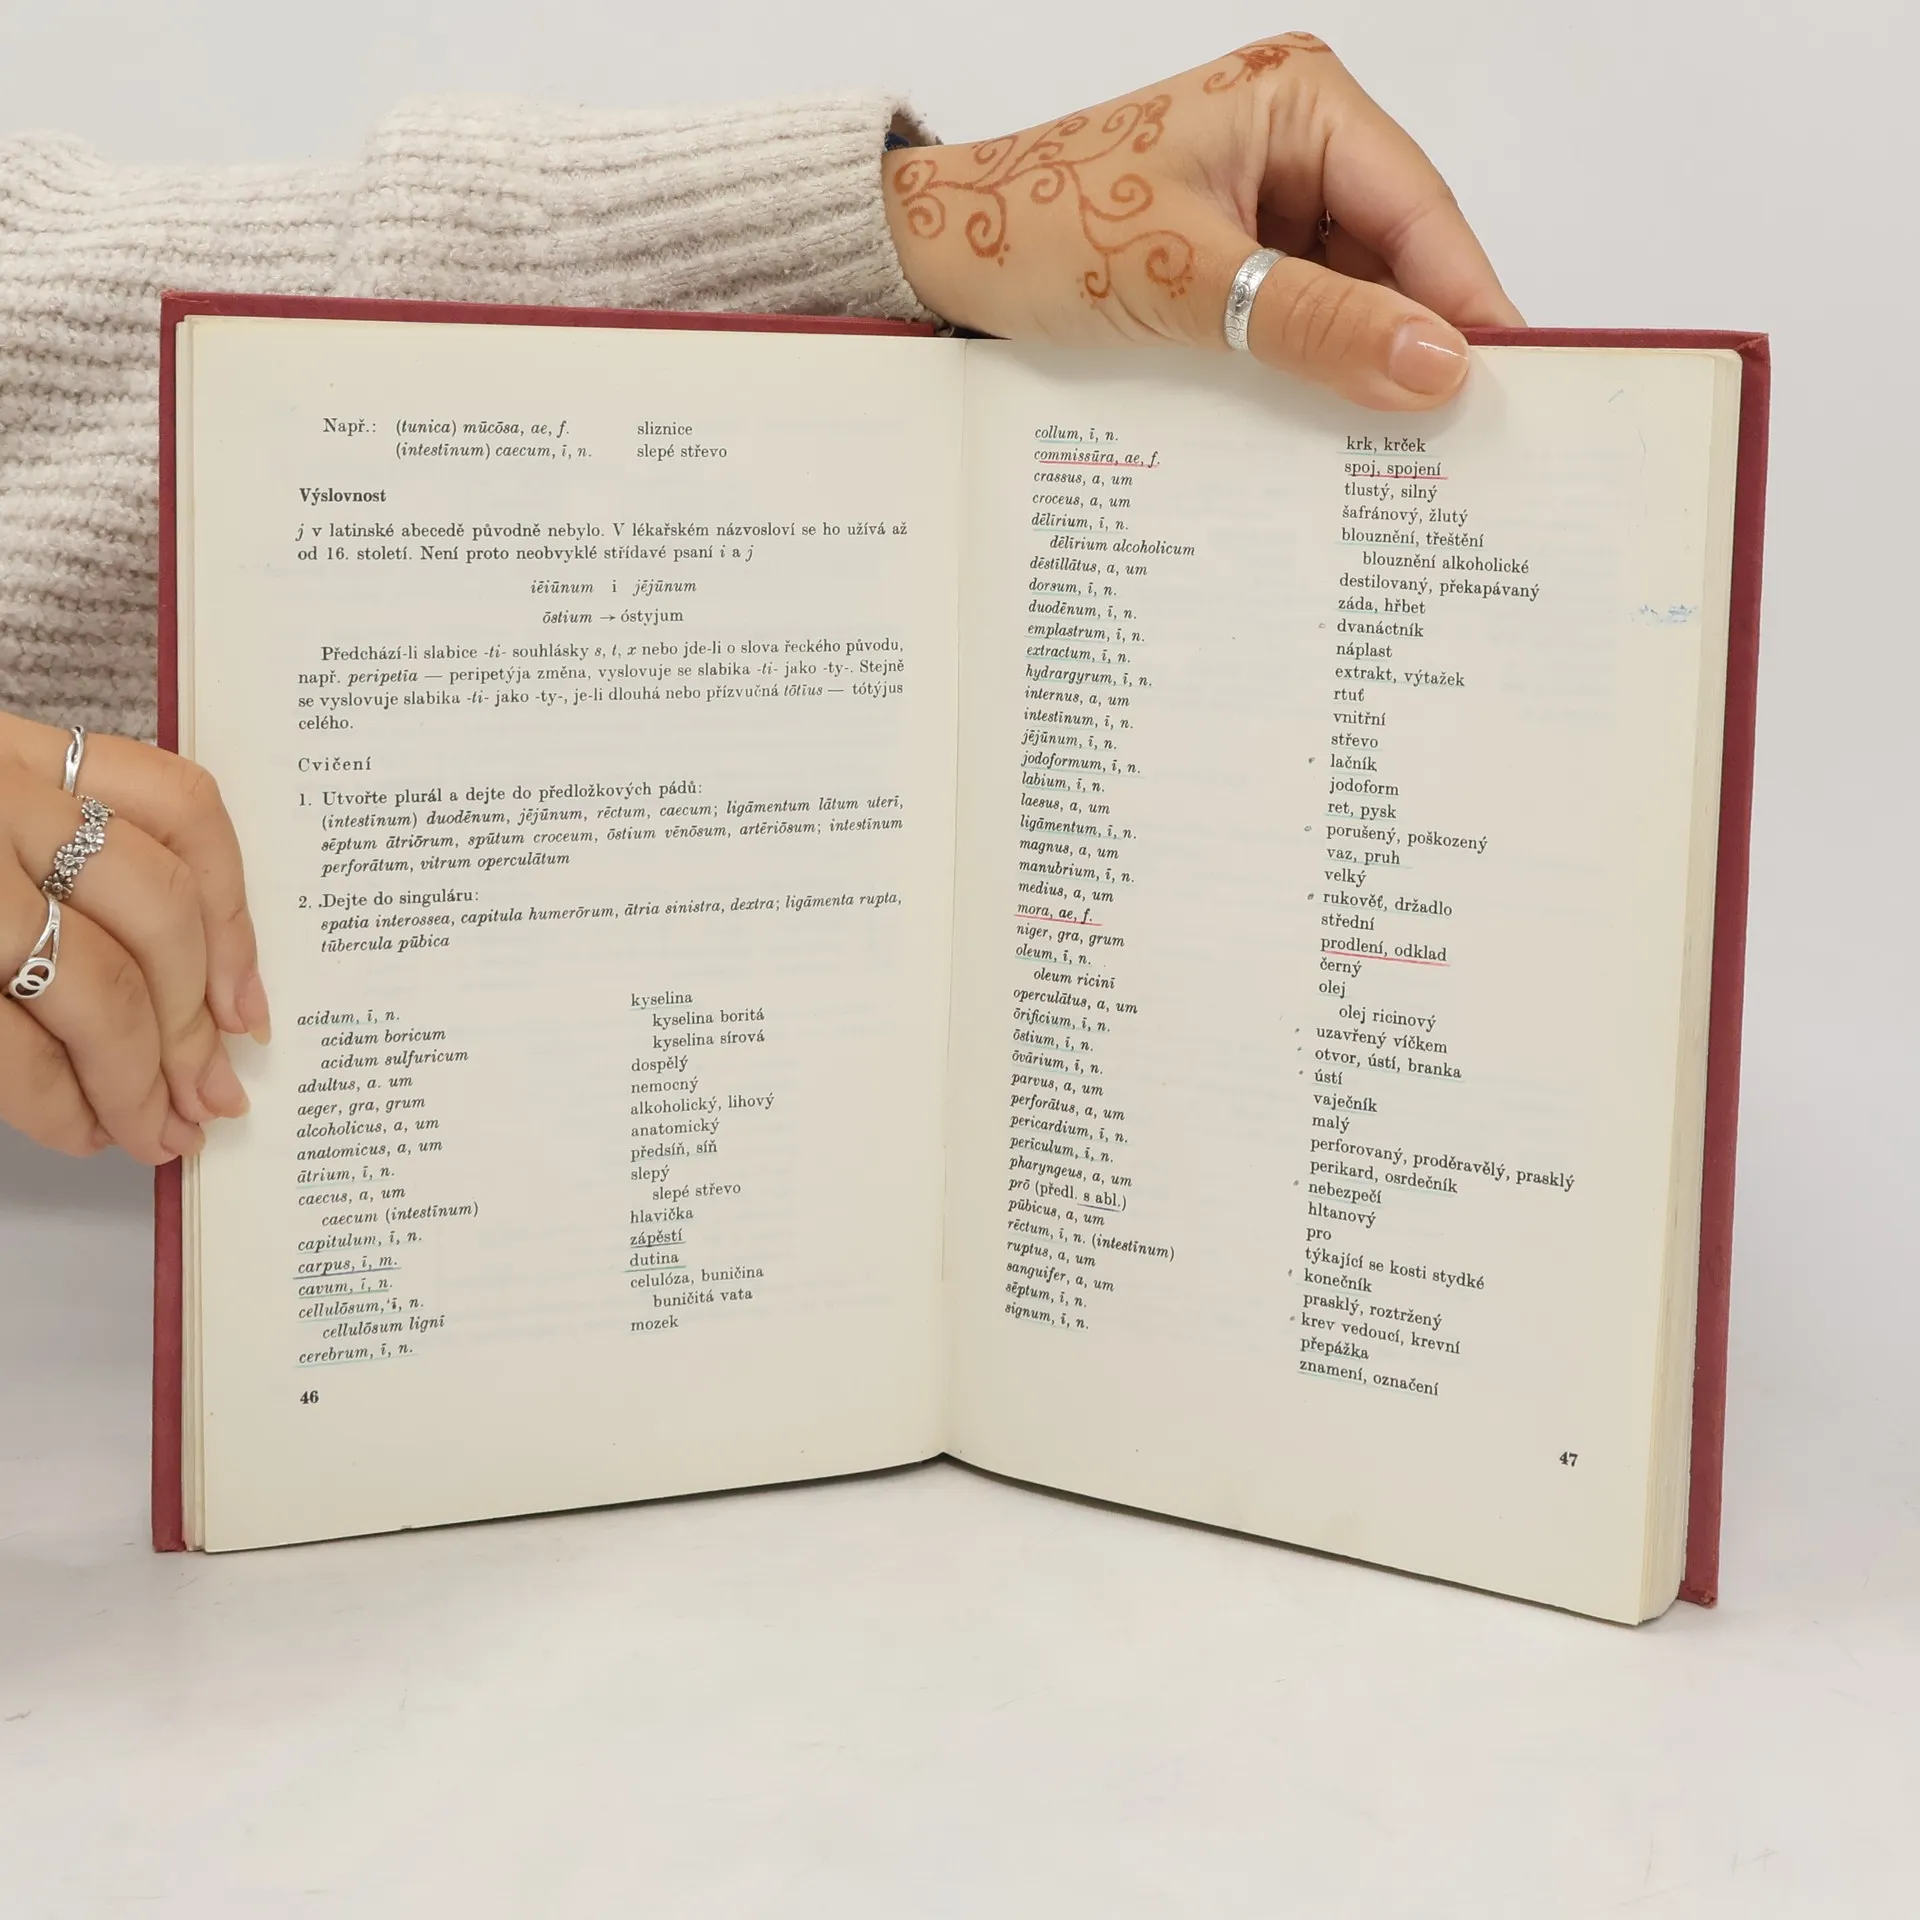 Např.: (tunica) mūcōsa, ae, f. sliznice
(intestīnum) caecum, ī, n. slepé střevo
Výslovnost
j v latinské abecedě původně nebylo. V lékařském názvosloví se ho užívá až
od 16. století. Není proto neobvyklé střídavé psaní i a j
iēiūnum i jējūnum
ōstium → óstyjum
Předchází-li slabice -ti- souhlásky s, t, x nebo jde-li o slova řeckého původu,
např. peripetīa — peripetýja změna, vyslovuje se slabika -ti- jako -ty-. Stejně
se vyslovuje slabika -ti- jako -ty-, je-li dlouhá nebo přízvučná tōtīus — tótýjus
celého.
Cvičení
1. Utvořte plurál a dejte do předložkových pádů:
(intestīnum) duodēnum, jējūnum, rēctum, caecum; ligāmentum lātum uterī,
sēptum ātriōrum, spūtum croceum, ōstium vēnōsum, artēriōsum; intestīnum
perforātum, vitrum operculātum
2. Dejte do singuláru:
spatia interossea, capitula humerōrum, ātria sinistra, dextra; ligāmenta rupta,
tūbercula pūbica
acidum, ī, n. kyselina
acidum boricum kyselina boritá
acidum sulfuricum kyselina sírová
adultus, a. um dospělý
aeger, gra, grum nemocný
alcoholicus, a, um alkoholický, lihový
anatomicus, a, um anatomický
ātrium, ī, n. předsíň, síň
caecus, a, um slepý
caecum (intestīnum) slepé střevo
capitulum, ī, n. hlavička
carpus, ī, m. zápěstí
cavum, ī, n. dutina
cellulōsum, ī, n. celulóza, buničina
cellulōsum lignī buničitá vata
cerebrum, ī, n. mozek
46
collum, ī, n. krk, krček
commissūra, ae, f. spoj, spojení
crassus, a, um tlustý, silný
croceus, a, um šafránový, žlutý
dēlīrium, ī, n. blouznění, třeštění
dēlīrium alcoholicum blouznění alkoholické
dēstīllātus, a, um destilovaný, překapávaný
dorsum, ī, n. záda, hřbet
duodēnum, ī, n. dvanáctník
emplastrum, ī, n. náplast
extractum, ī, n. extrakt, výtažek
hydrargyrum, ī, n. rtuť
internus, a, um vnitřní
intestīnum, ī, n. střevo
jējūnum, ī, n. lačník
jodoformum, ī, n. jodoform
labium, ī, n. ret, pysk
laesus, a, um porušený, poškozený
ligāmentum, ī, n. vaz, pruh
magnus, a, um velký
manubrium, ī, n. rukověť, držadlo
medius, a, um střední
mora, ae, f. prodlení, odklad
niger, gra, grum černý
oleum, ī, n. olej
oleum ricinī olej ricinový
operculātus, a, um uzavřený víčkem
ōrificium, ī, n. otvor, ústí, branka
ōstium, ī, n. ústí
ōvārium, ī, n. vaječník
parvus, a, um malý
perforātus, a, um perforovaný, proděravělý, prasklý
pericardium, ī, n. perikard, osrdečník
perīculum, ī, n. nebezpečí
pharyngeus, a, um hltanový
prō (předl. s abl.) pro
pūbicus, a, um týkající se kosti stydké
rēctum, ī, n. (intestīnum) konečník
ruptus, a, um prasklý, roztržený
sanguifer, a, um krev vedoucí, krevní
sēptum, ī, n. přepážka
signum, ī, n. znamení, označení
47